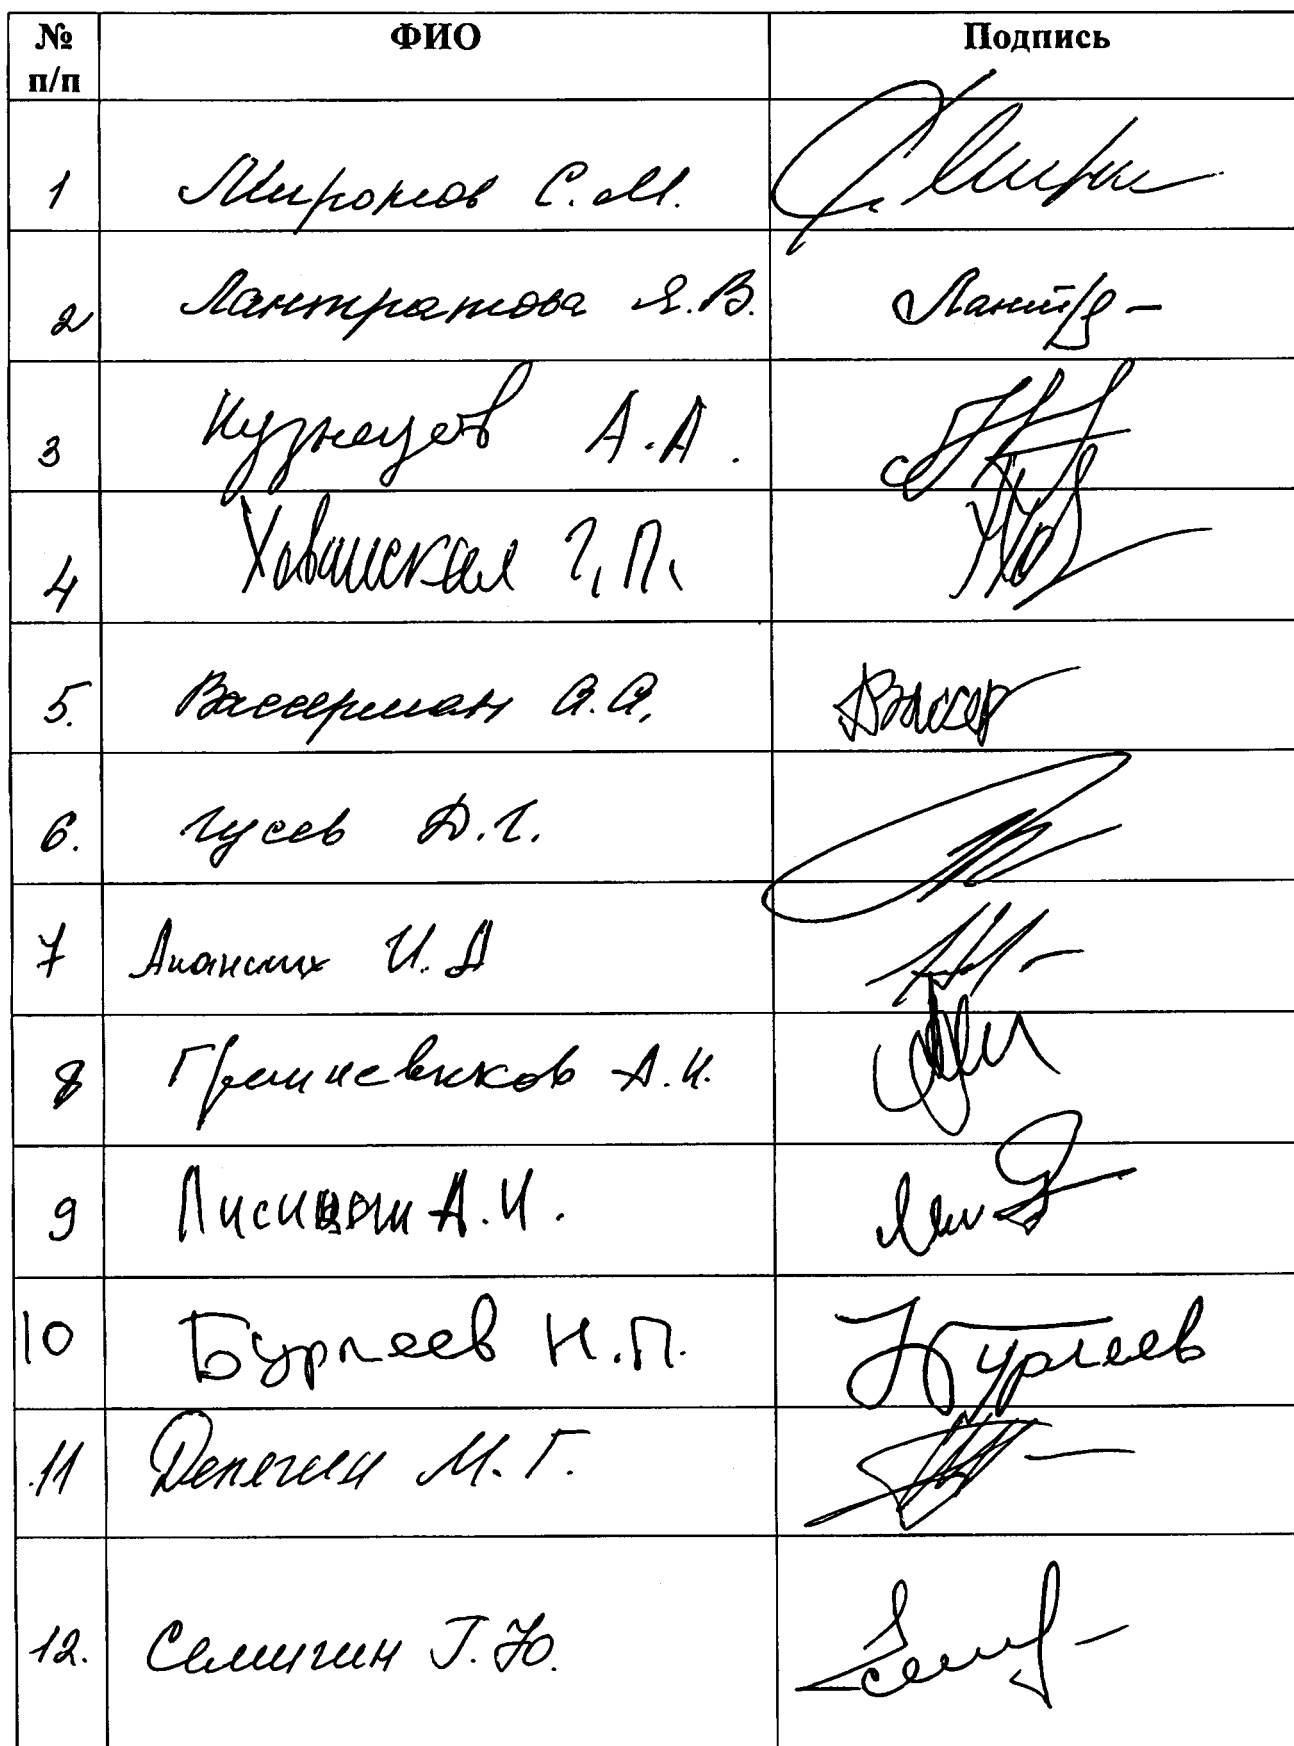 № п/п ФИО Подпись
1 Миронов С.М.
2 Лантратова Я.В. Лант
3 Кузнецов А.А.
4 Хованская Г.П.
5. Вассерман А.А. Вассер
6. Гусев Д.Г.
7 Ананских И.А
8 Грешневиков А.Н.
9 Лисицын А.И.
10 Бурляев Н.П. Бурляев
11 Делягин М.Г.
12. Семигин Г.Ю.